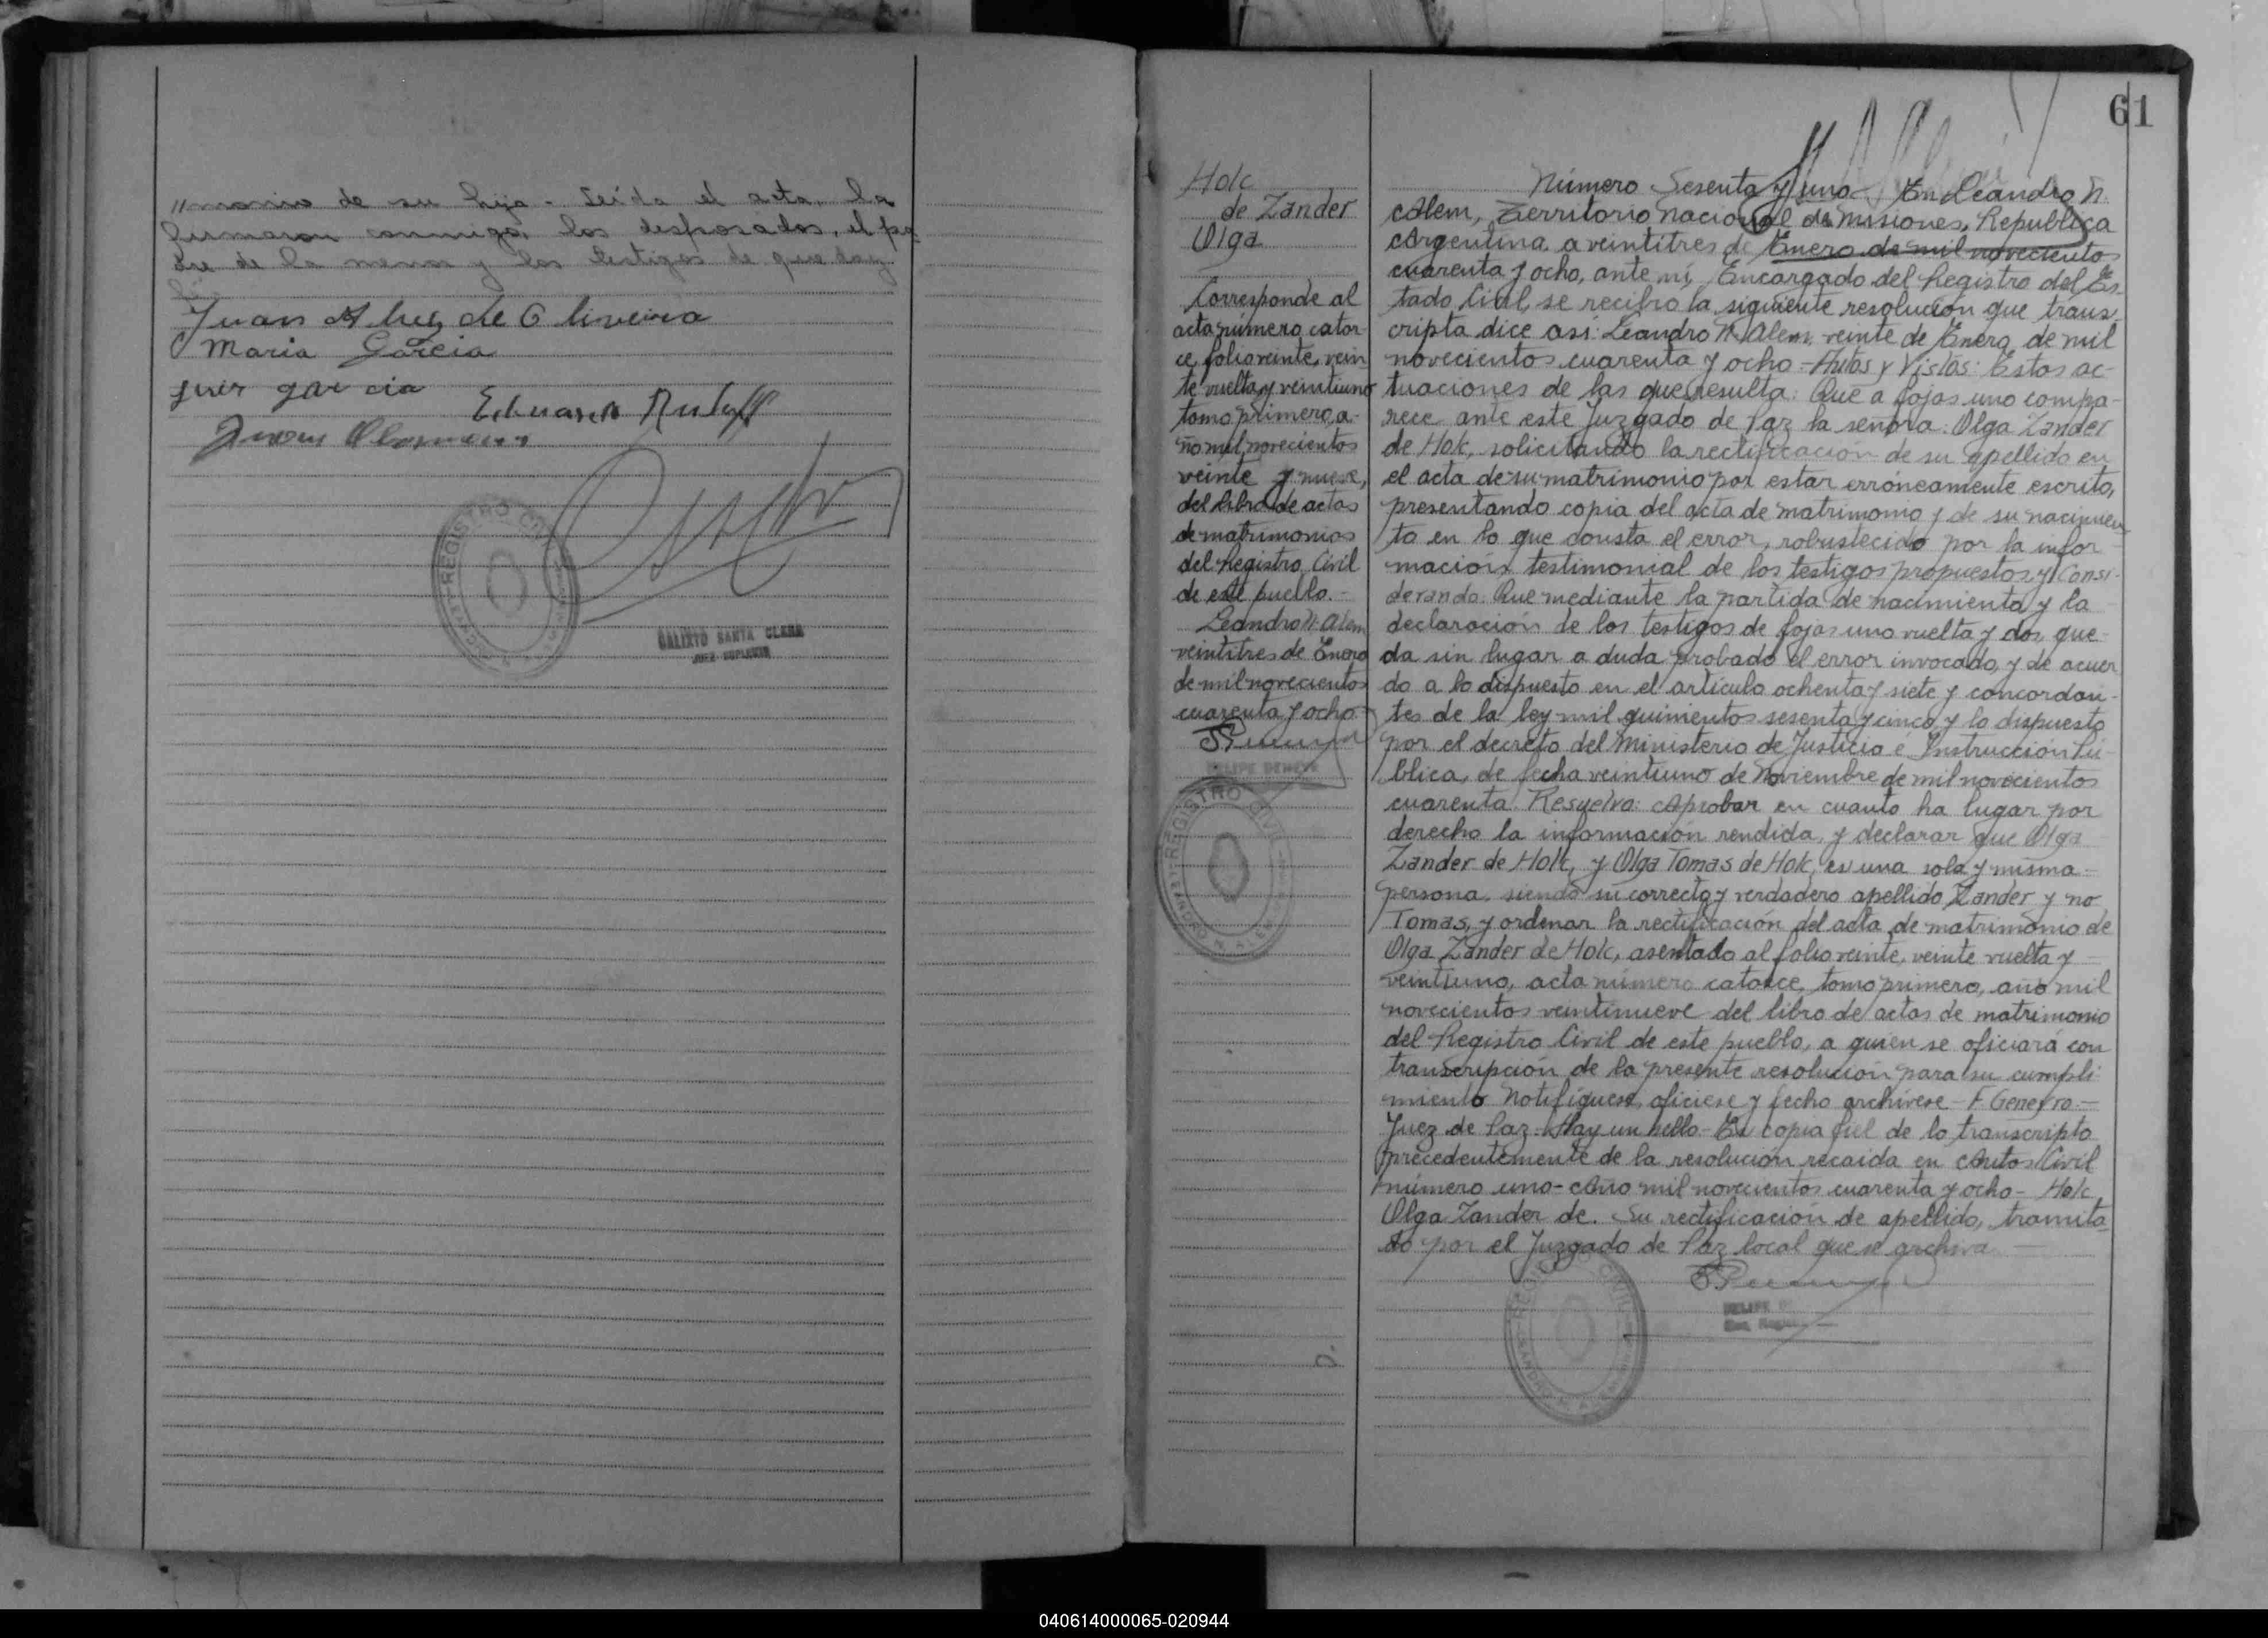 "monio de su hija - Leída el acta, la
firmaron conmigo, los desposados, el pa
dre de la menor y los testigos de que doy
Juan Alvez de Oliveira
Maria Garcia
garcia
Eduardo
Juan
REGISTRO CIVIL
CALIXTO SANTA CLARA
JUEZ SUPLENTE
61
Holc
de Zander
Olga
Corresponde al
acta número cator
ce, folio veinte, vein
te vuelta y veintiuno
tomo primero, a-
ño mil novecientos
veinte y nueve,
del libro de actas
de matrimonios
del Registro Civil
de este pueblo.-
Leandro N. Alem
veintitres de Enero
de mil novecientos
cuarenta y ocho-
FELIPE GENEYRO
REGISTRO CIVIL
LEANDRO N. ALEM
Número Sesenta y uno - En Leandro N.
Alem, Territorio nacional de Misiones, República
Argentina a veintitres de Enero de mil novecientos
cuarenta y ocho, ante mí, Encargado del Registro del Es-
tado Civil, se recibio la siguiente resolución que trans
cripta dice asi: Leandro N. Alem, veinte de Enero de mil
novecientos cuarenta y ocho - Autos y Vistos: Estas ac-
tuaciones de las que resulta: Que a fojas uno compa-
rece ante este Juzgado de Paz la señora: Olga Zander
de Holc, solicitando la rectificación de su apellido en
el acta de su matrimonio por estar erróneamente escrito,
presentando copia del acta de matrimonio y de su nacimien-
to en lo que consta el error, robustecido por la infor-
mación testimonial de los testigos propuestos, y Consi-
derando: Que mediante la partida de nacimiento y la
declaración de los testigos de fojas uno vuelta y dos, que-
da sin lugar a duda probado el error invocado, y de acuer
do a lo dispuesto en el artículo ochenta y siete y concordan-
tes de la ley mil quinientos sesenta y cinco y lo dispuesto
por el decreto del Ministerio de Justicia é Instrucción Pú-
blica, de fecha veintiuno de Noviembre de mil novecientos
cuarenta. Resuelvo: Aprobar en cuanto ha lugar por
derecho la información rendida, y declarar que Olga
Zander de Holc, y Olga Tomas de Holc, es una sola y misma
persona, siendo su correcto y verdadero apellido Zander y no
Tomas, y ordenar la rectificación del acta de matrimonio de
Olga Zander de Holc, asentado al folio veinte, veinte vuelta y
veintiuno, acta número catorce, tomo primero, año mil
novecientos veintinueve del libro de actas de matrimonio
del Registro Civil de este pueblo, a quien se oficiará con
transcripción de la presente resolución para su cumpli-
miento Notifíquese, ofíciese y fecho archívese - F. Geneyro.-
Juez de Paz - Hay un sello - Es copia fiel de lo transcripto
precedentemente de la resolución recaida en Autos Civil
número uno - Año mil novecientos cuarenta y ocho - Holc
Olga Zander de. Su rectificación de apellido, tramita
do por el Juzgado de Paz local que se archiva
FELIPE
REGISTRO CIVIL
040614000065-020944